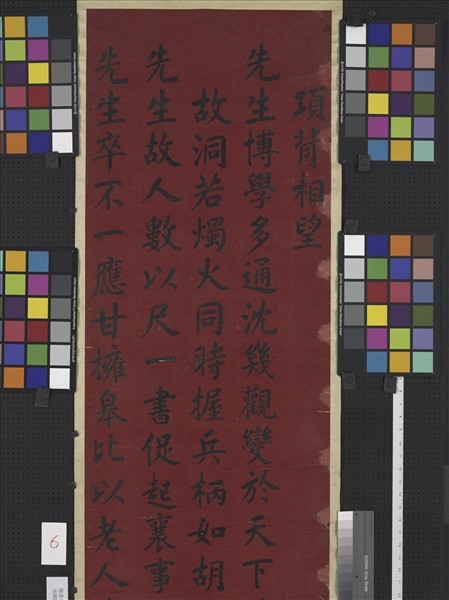 項背相望
先生博學多通沈幾觀變於天下
故洞若燭火同時握兵柄如胡
先生故人數以尺一書促起襄事
先生卒不一應甘擁皋比以老人
6